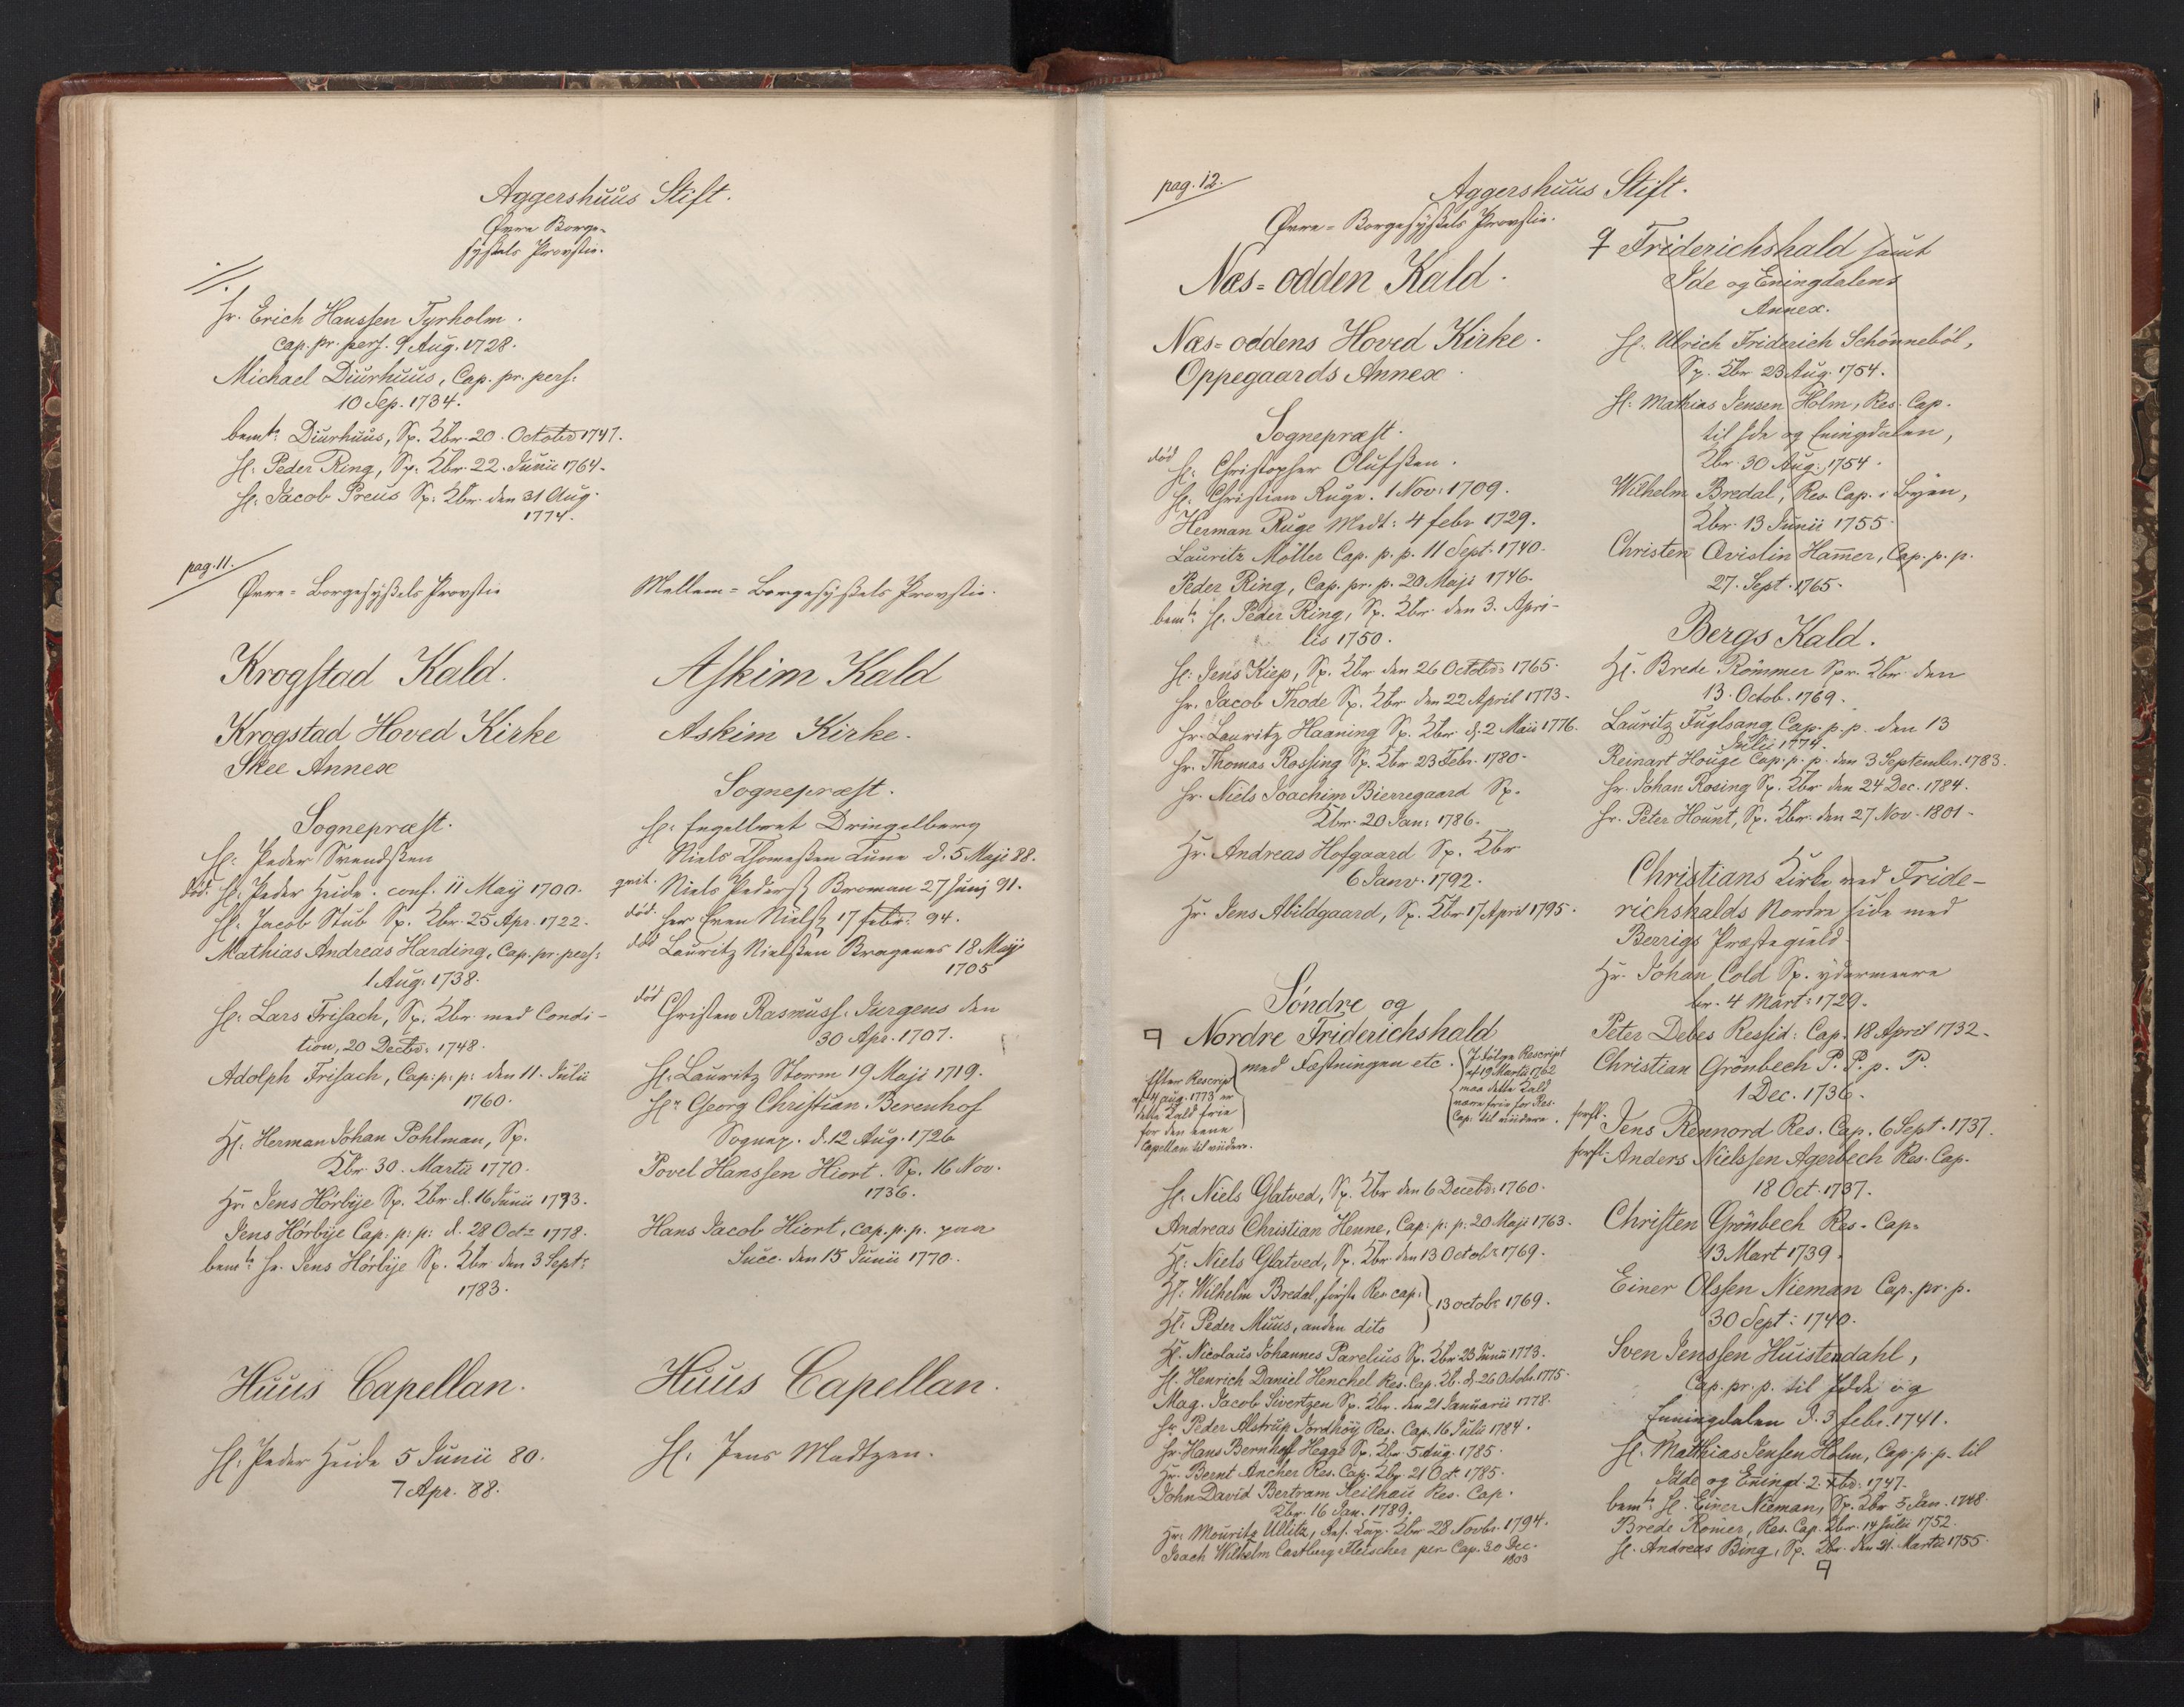 Aggershuus Stift.
Øvre Borge-
syssels Provstie.
Hr. Erich Hanssen Tyrholm.
Cap. pr. pers. 9 Aug. 1728.
Michael Diurhuus, Cap. pr. pers:
10 Sep. 1734.
bemte: Diurhuus, Sp. Kbr. 20. October 1747.
Hr: Peder Ring, Sp: Kbr. 22. Junii 1764.
Hr: Jacob Preus Sp: Kbr. den 31 Aug.
1774.
pag. 11.
Øvre=Borgesyssels Provstie
Krogstad Kald.
Krogstad Hoved Kirke
Skee Annex
Sognepræst.
Hr: Peder Svendsen
død. Hr. Peder Heide. conf. 11 Maij 1700.
Hr. Jacob Stub Sp. Kbr. 25 Apr. 1722.
Mathias Andreas Harding, Cap. pr. pers:
1 Aug. 1738.
Hr: Lars Frisach, Sp. Kbr. med Condi-
tion, 20 Decbr: 1748.
Adolph Frisach, Cap: p: p: den 11. Julii
1760.
Hr: Herman Johan Pohlman, Sp.
Kbr. 30. Martii 1770.
Hr: Jens Hörbye Sp. Kbr. d. 16 Junii 1773.
Jens Hörbye Cap: p: p: d. 28 Octr 1778.
bemte: Hr. Jens Hörbye Sp. Kbr. den 3 Septr:
1783.
Huus Capellan.
Hr: Peder Heide 5 Junii 80.
7 Apr. 88.
Mellem=Borgesyssels Provstie.
Askim Kald
Askim Kirke.
Sognepræst.
Hr: Engelbret Dringelberg
Niels Thomesen Lune d. 5. Maji 88.
qvit. Niels Peders. Broman 27 Junij 91.
død. Her Even Niels. 17 febr. 94.
død Lauritz Nielsen Bragenes 18 Maij
1705
død Christen Rasmuss. Jurgens den
30 Apr. 1707.
Hr: Lauritz Storm 19 Maji 1719.
Hr Georg Christian Berenhof
Sognep. d. 12 Aug. 1726
Povel Hanssen Hiort. Sp. 16 Nov.
1736.
Hans Jacob Hiort, Cap. p. p. paa
Succ. den 15 Junii 1770.
Huus Capellan.
Hr: Jens Madtzen.
pag. 12.
Aggershuus Stift.
Øvre=Borgesyssels Provstie.
Næs=odden Kald.
Næs=oddens Hoved Kirke.
Oppegaards Annex.
Sognepræst.
død Hr: Christopher Olufsen.
Hr: Christian Ruge. 1 Nov: 1709.
Herman Ruge Medt: 4 febr 1729.
Lauritz Möller Cap. p. p. 11 Sept. 1740.
Peder Ring, Cap. pr. p. 20 Maji 1746.
bemte: Hr. Peder Ring, Sp. Kbr. den 3. Apri-
lis 1750.
Hr: Jens Kiep, Sp. Kbr. den 26 Octobr: 1765.
Hr. Jacob Thode Sp. Kbr den 22 April 1773.
Hr. Lauritz Haaning Sp. Kbr. d. 2 Maii 1776.
Hr. Thomas Rossing Sp. Kbr 23 Febr. 1780.
Hr. Niels Joachim Bierregaard Sp.
Kbr. 20 Jan: 1786.
Hr. Andreas Hofgaard Sp. Kbr
6 Janv. 1792.
Hr. Jens Abildgaard, Sp. Kbr 17 April 1795.
Søndre og
Nordre Friderichshald
med Fæstningen etc.
Efter Rescript
af 4 aug. 1773 er
dette Kald frie
for den eene
Capellan til videre.
Ifølge Rescript
af 19 Martii 1762
maa dette Kald
være frie for Res.
Cap: til videre.
Hr: Niels Glatved, Sp. Kbr den 6 Decebr: 1760.
Andreas Christian Henne, Cap: p: p: 20 Maji 1763.
Hr: Niels Glatved, Sp. Kbr. den 13 Octobr 1769.
Hr: Wilhelm Bredal, første Res cap: } 13 octobr 1769.
Hr: Peder Muus, anden dito
Hr. Nicolaus Johannes Parelius Sp. Kbr. 23 Junii 1773.
Hr. Henrich Daniel Henchel Res. Cap. Kb. d. 26 Octobr. 1775.
Mag. Jacob Sivertzen Sp. Kbr. den 21 Januarii 1778.
Hr. Peder Alstrup Jordhøy Res. Cap. 16 Julii 1784.
Hr. Hans Bernhoft Hegge Sp. Kbr. 5 Aug. 1785.
Hr. Bernt Ancher Res. Cap. Kbr. 21 Oct. 1785.
John David Bertram Keilhau Res. Cap.
Kbr. 16 Jan. 1789.
Hr: Mourits Ullitz, Res. Cap. Kbr 28 Novbr. 1794.
Isach Wilhelm Castberg Fleischer per Cap. 30 Dec.
1803
Friderichshald samt
Ide og Eningdalens
Annex.
Hr. Ulrich Friderich Schönneböl,
Sp. Kbr 23 Aug. 1754.
Hr: Mathias Jensen Holm, Res. Cap.
til Ide og Eningdalen,
Kbr. 30 Aug. 1754.
Wilhelm Bredal, Res. Cap. i Byen,
Kbr. 13 Junii 1755.
Christen Qvislin Hamer, Cap. p. p.
27. Sept. 1765.
Bergs Kald.
Hr. Brede Römmer Spr. Kbr. den
13. Octob. 1769.
Lauritz Fuglsang Cap. p. p. den 13
Julii 1774.
Reinart Houge Cap. p. p. den 3 September 1783.
Hr. Johan Rosing Sp. Kbr den 24 Dec. 1784.
Hr. Peter Hount, Sp. Kbr. den 27 Nov. 1801.
Christians Kirke med Fride-
richshalds Nordre side med
Berrigs Præstegield.
Hr. Johan Cold Sp. ydermeere
br. 4 Mart: 1729.
Peter Debes Ressid: Cap. 18 April 1732.
Christian Grönbech P. P. p. P.
1 Dec. 1736.
forfl. Jens Rennord Res. Cap. 6 Sept. 1737.
forfl. Anders Nielssen Agerbech Res. Cap.
18 Oct. 1737.
Christen Grönbech Res. Cap.
13 Mart 1739.
Einer Olssen Nieman Cap. pr. p.
30 Sept: 1740.
Sven Jenssen Huistendahl,
Cap. pr. p. til Idde og
Enningdalen d. 3 febr. 1741.
Hr. Matthias Jensen Holm, Cap. p. p. til
Idde og Eningd. 2. Xbr. 1747.
bemte: Hr. Einer Nieman, Sp. Kbr 5 Jan. 1748.
Brede Römer, Res. Cap. Kbr. 14 Julii 1752.
Hr. Andreas Bing, Sp. Kbr. den 21. Martii 1755.